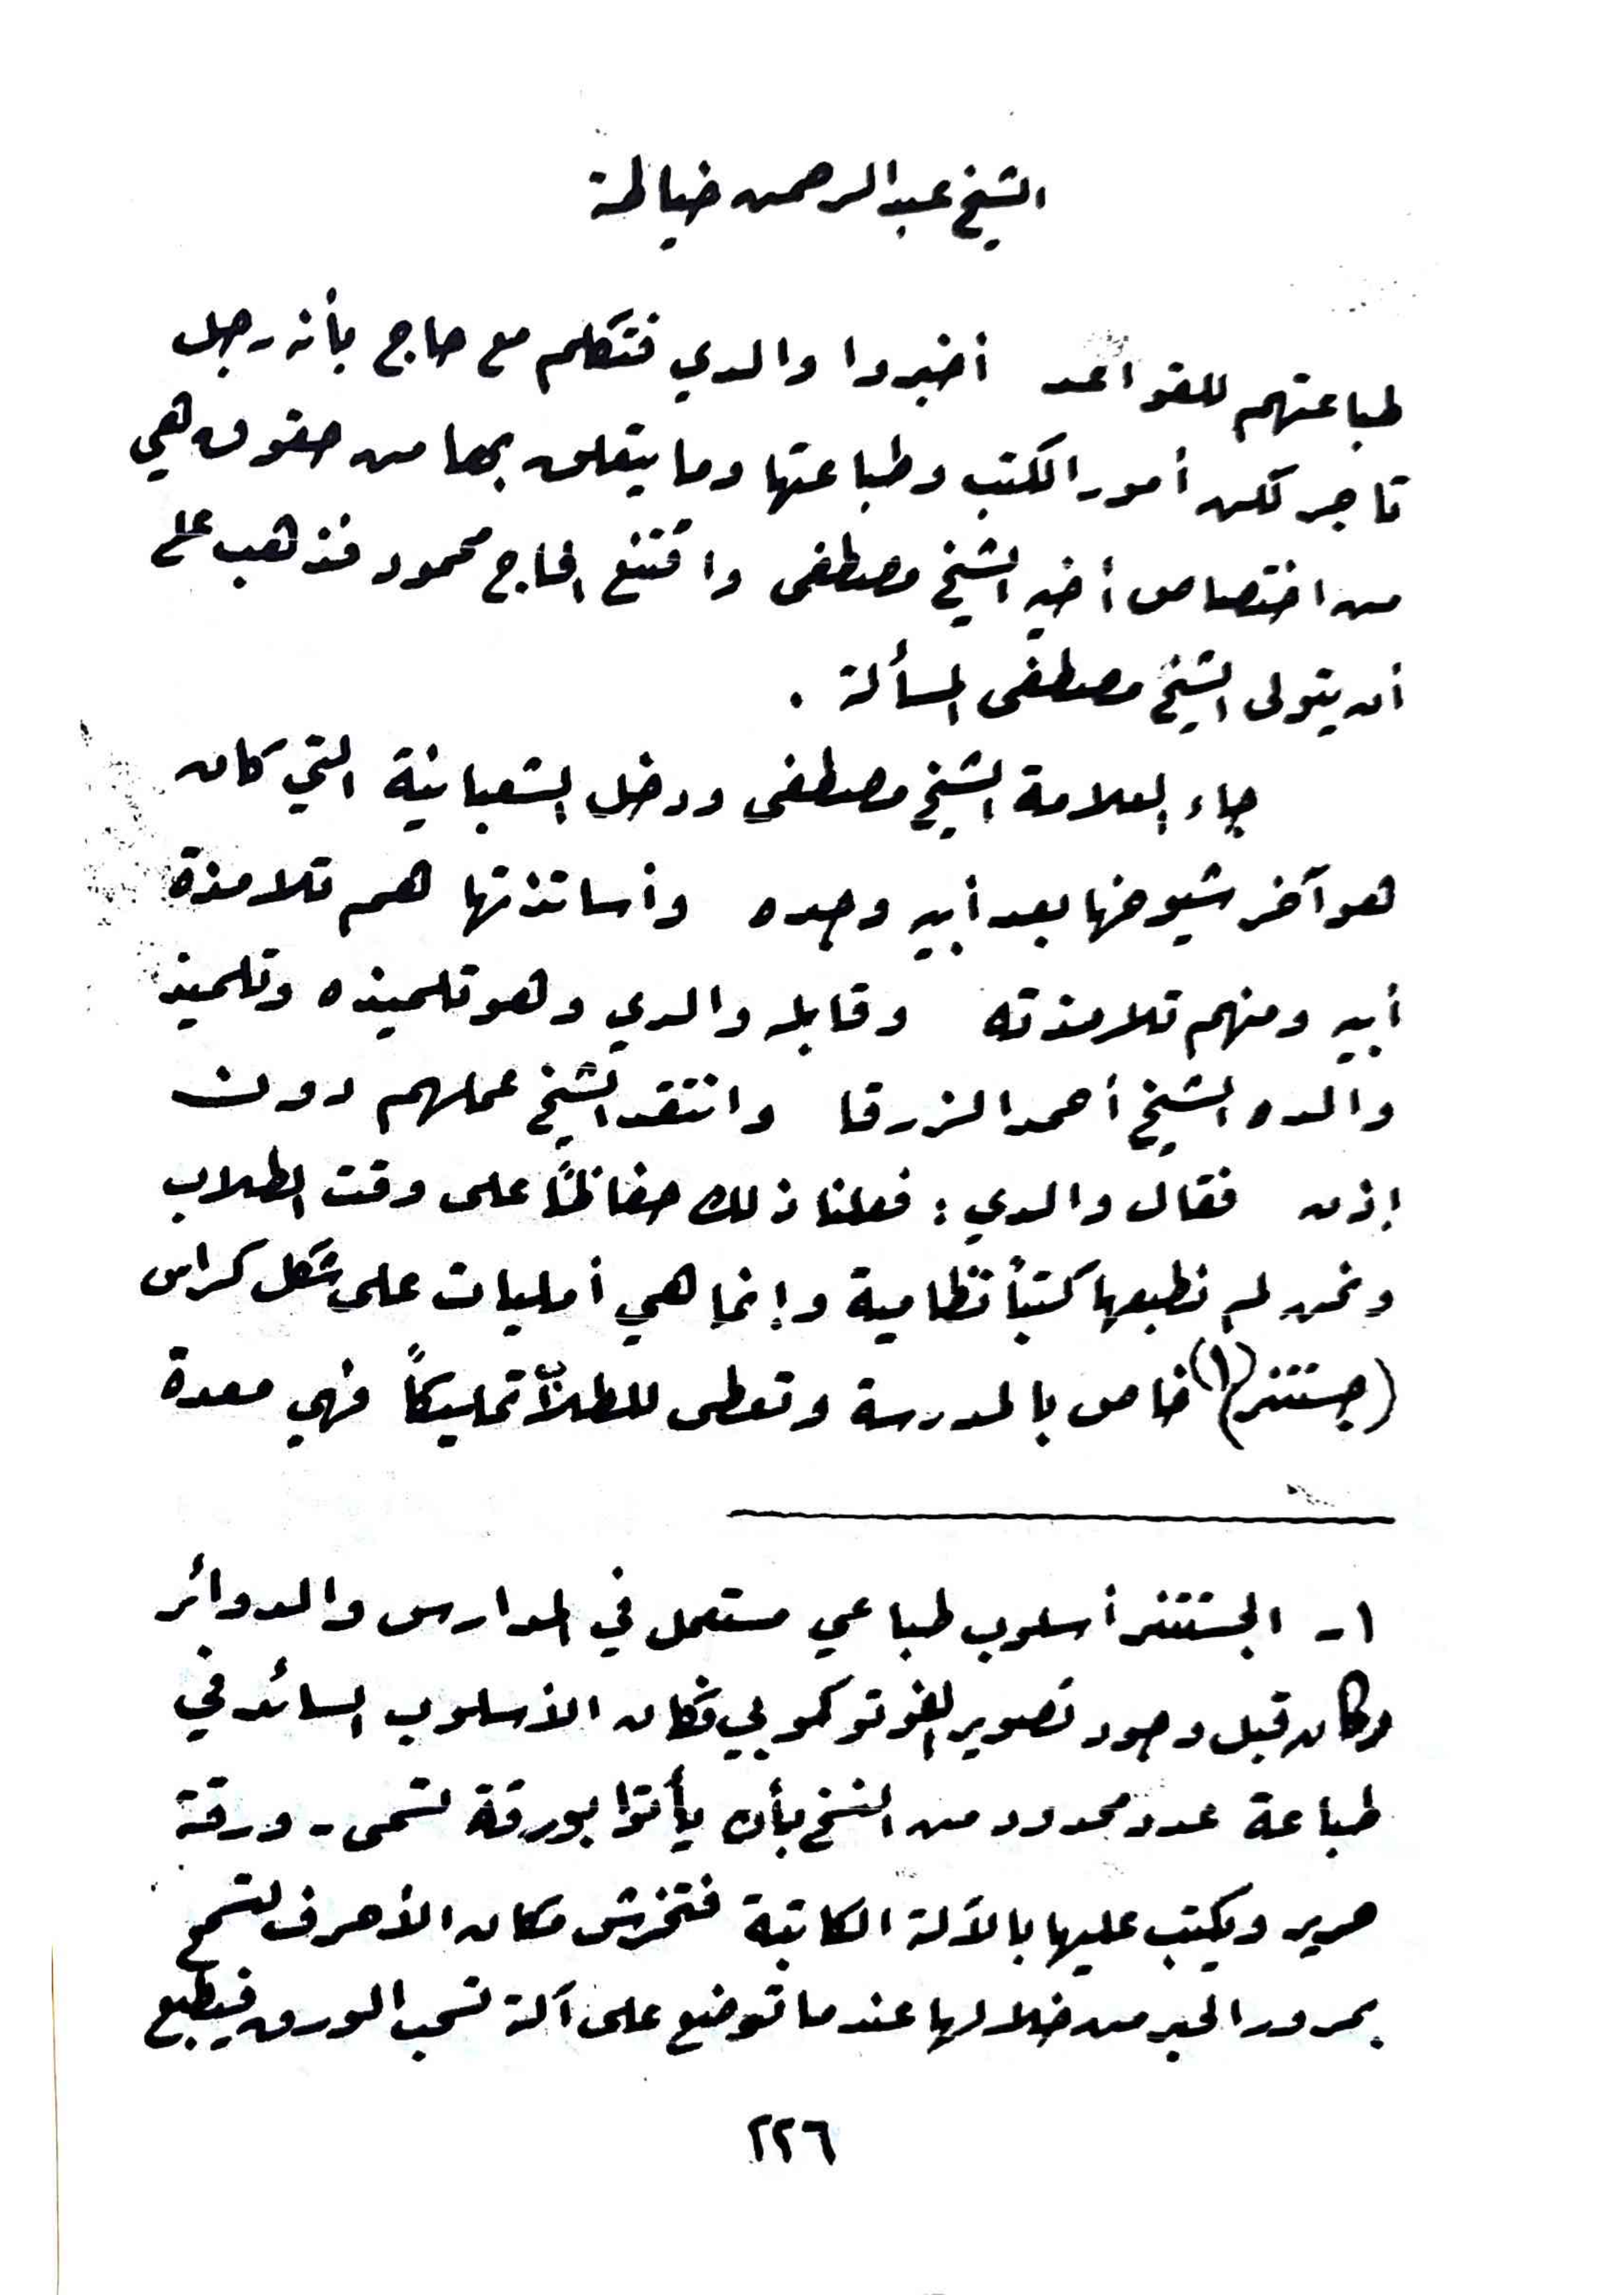 الشيخ عبد الرحمن خياطة
طباعتهم للقواعد أخبروا والدي فتكلم مع حاج بأنه رجل
تاجر لكن أمور الكتب وطباعتها وما يتعلق بها من حقوق هي
من اختصاص أخيه الشيخ مصطفى واقتنع الحاج محمود فذهب على
أن يتولى الشيخ مصطفى المسألة .
جاء العلامة الشيخ مصطفى ودخل الشعبانية التي كان
هو آخر شيوخها بعد أبيه وجده وأساتذتها هم تلامذة
أبيه ومنهم تلامذته وقابله والدي وهو تلميذه وتلميذ
والده الشيخ أحمد الزرقا وانتقد الشيخ عملهم دون
إذن فقال والدي : فعلنا ذلك حفاظاً على وقت الطلاب
ونحن لم نطبعها كتباً نظامية وإنما هي أمليات على شكل كراس
(جستتنر)(١) خاص بالمدرسة وتعطى للطلاب تمليكاً فهي معدة
١- الجستتنر أسلوب طباعي مستعمل في المدارس والدوائر
وكان قبل وجود تصوير الفوتوكوبي فكان الأسلوب السائد في
طباعة عدد محدود من النسخ بأن يأتوا بورقة تسمى - ورقة
حرير ويكتب عليها بالآلة الكاتبة فتخرش مكان الأحرف لتسمح
بمرور الحبر من خلالها عندما توضع على آلة تسحب الورق فيطبع
٢٢٦